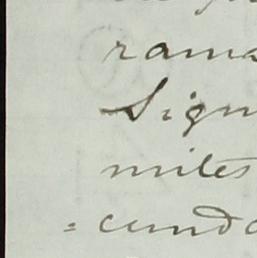 rama
Sign
miles
= cunda